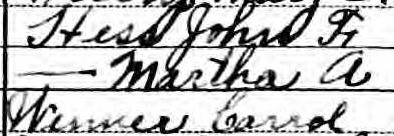 Hess John Fr
— Martha A
Winner Carrol